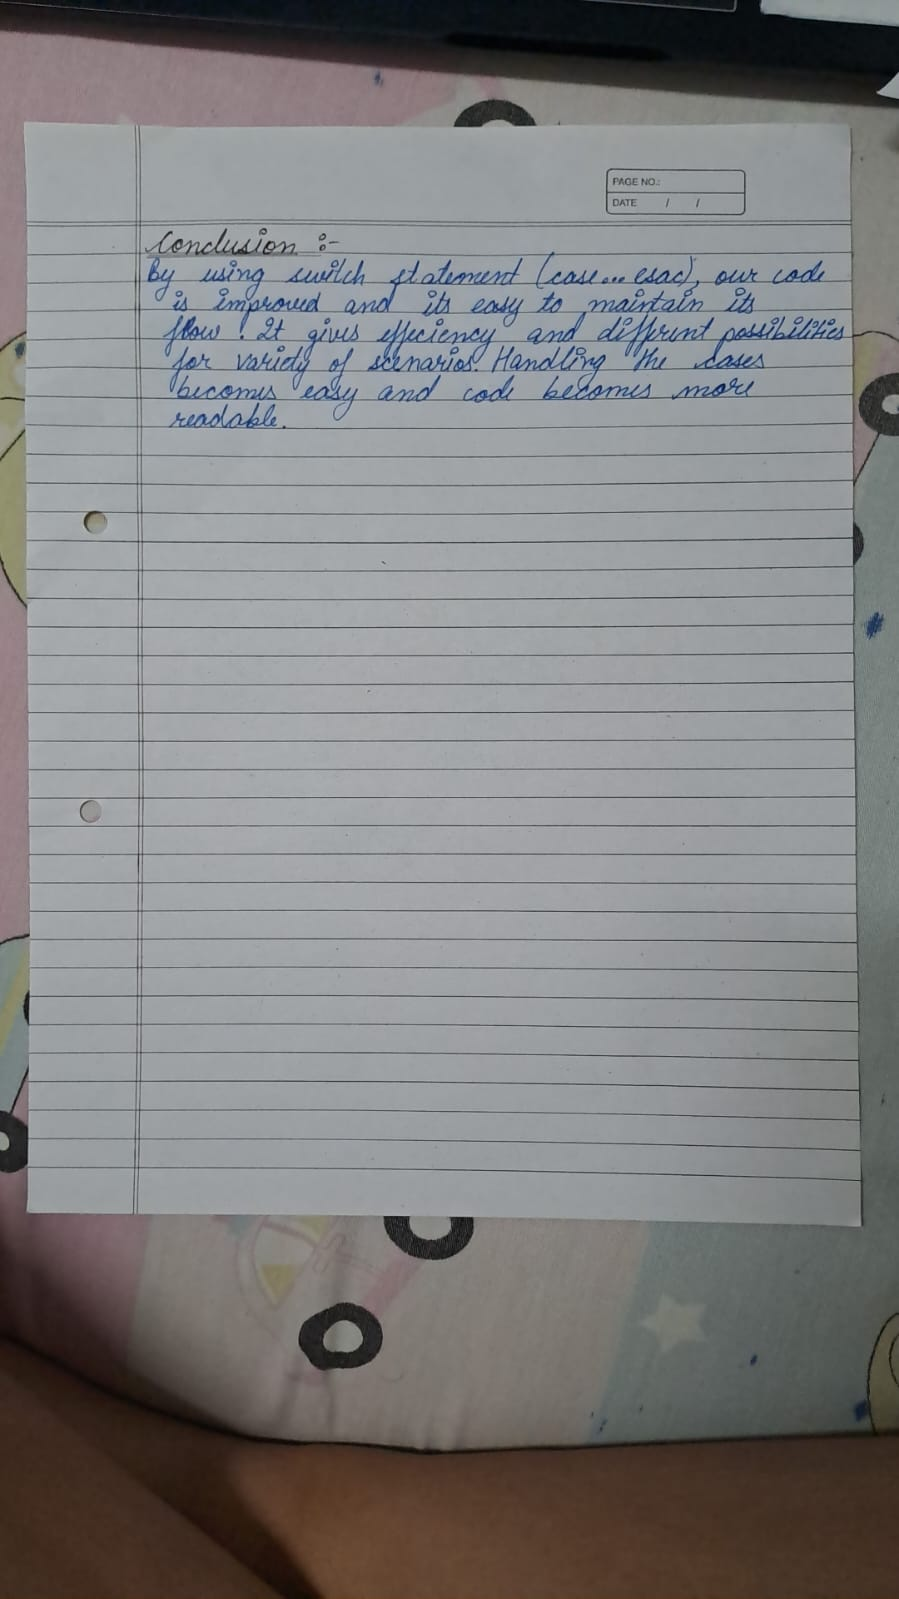 PAGE NO.:
DATE / /
Conclusion :-
By using switch statement (case... esac), our code
is improved and its easy to maintain its
flow. It gives effeciency and different possibilities
for variety of scenarios. Handling the cases
becomes easy and code becomes more
readable.